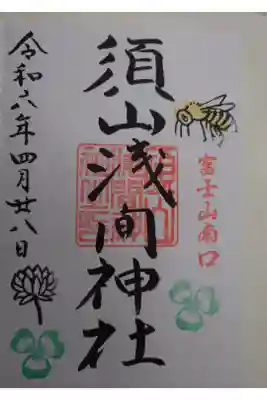 富士山南口
須山淺間神社
令和八年四月廿八日